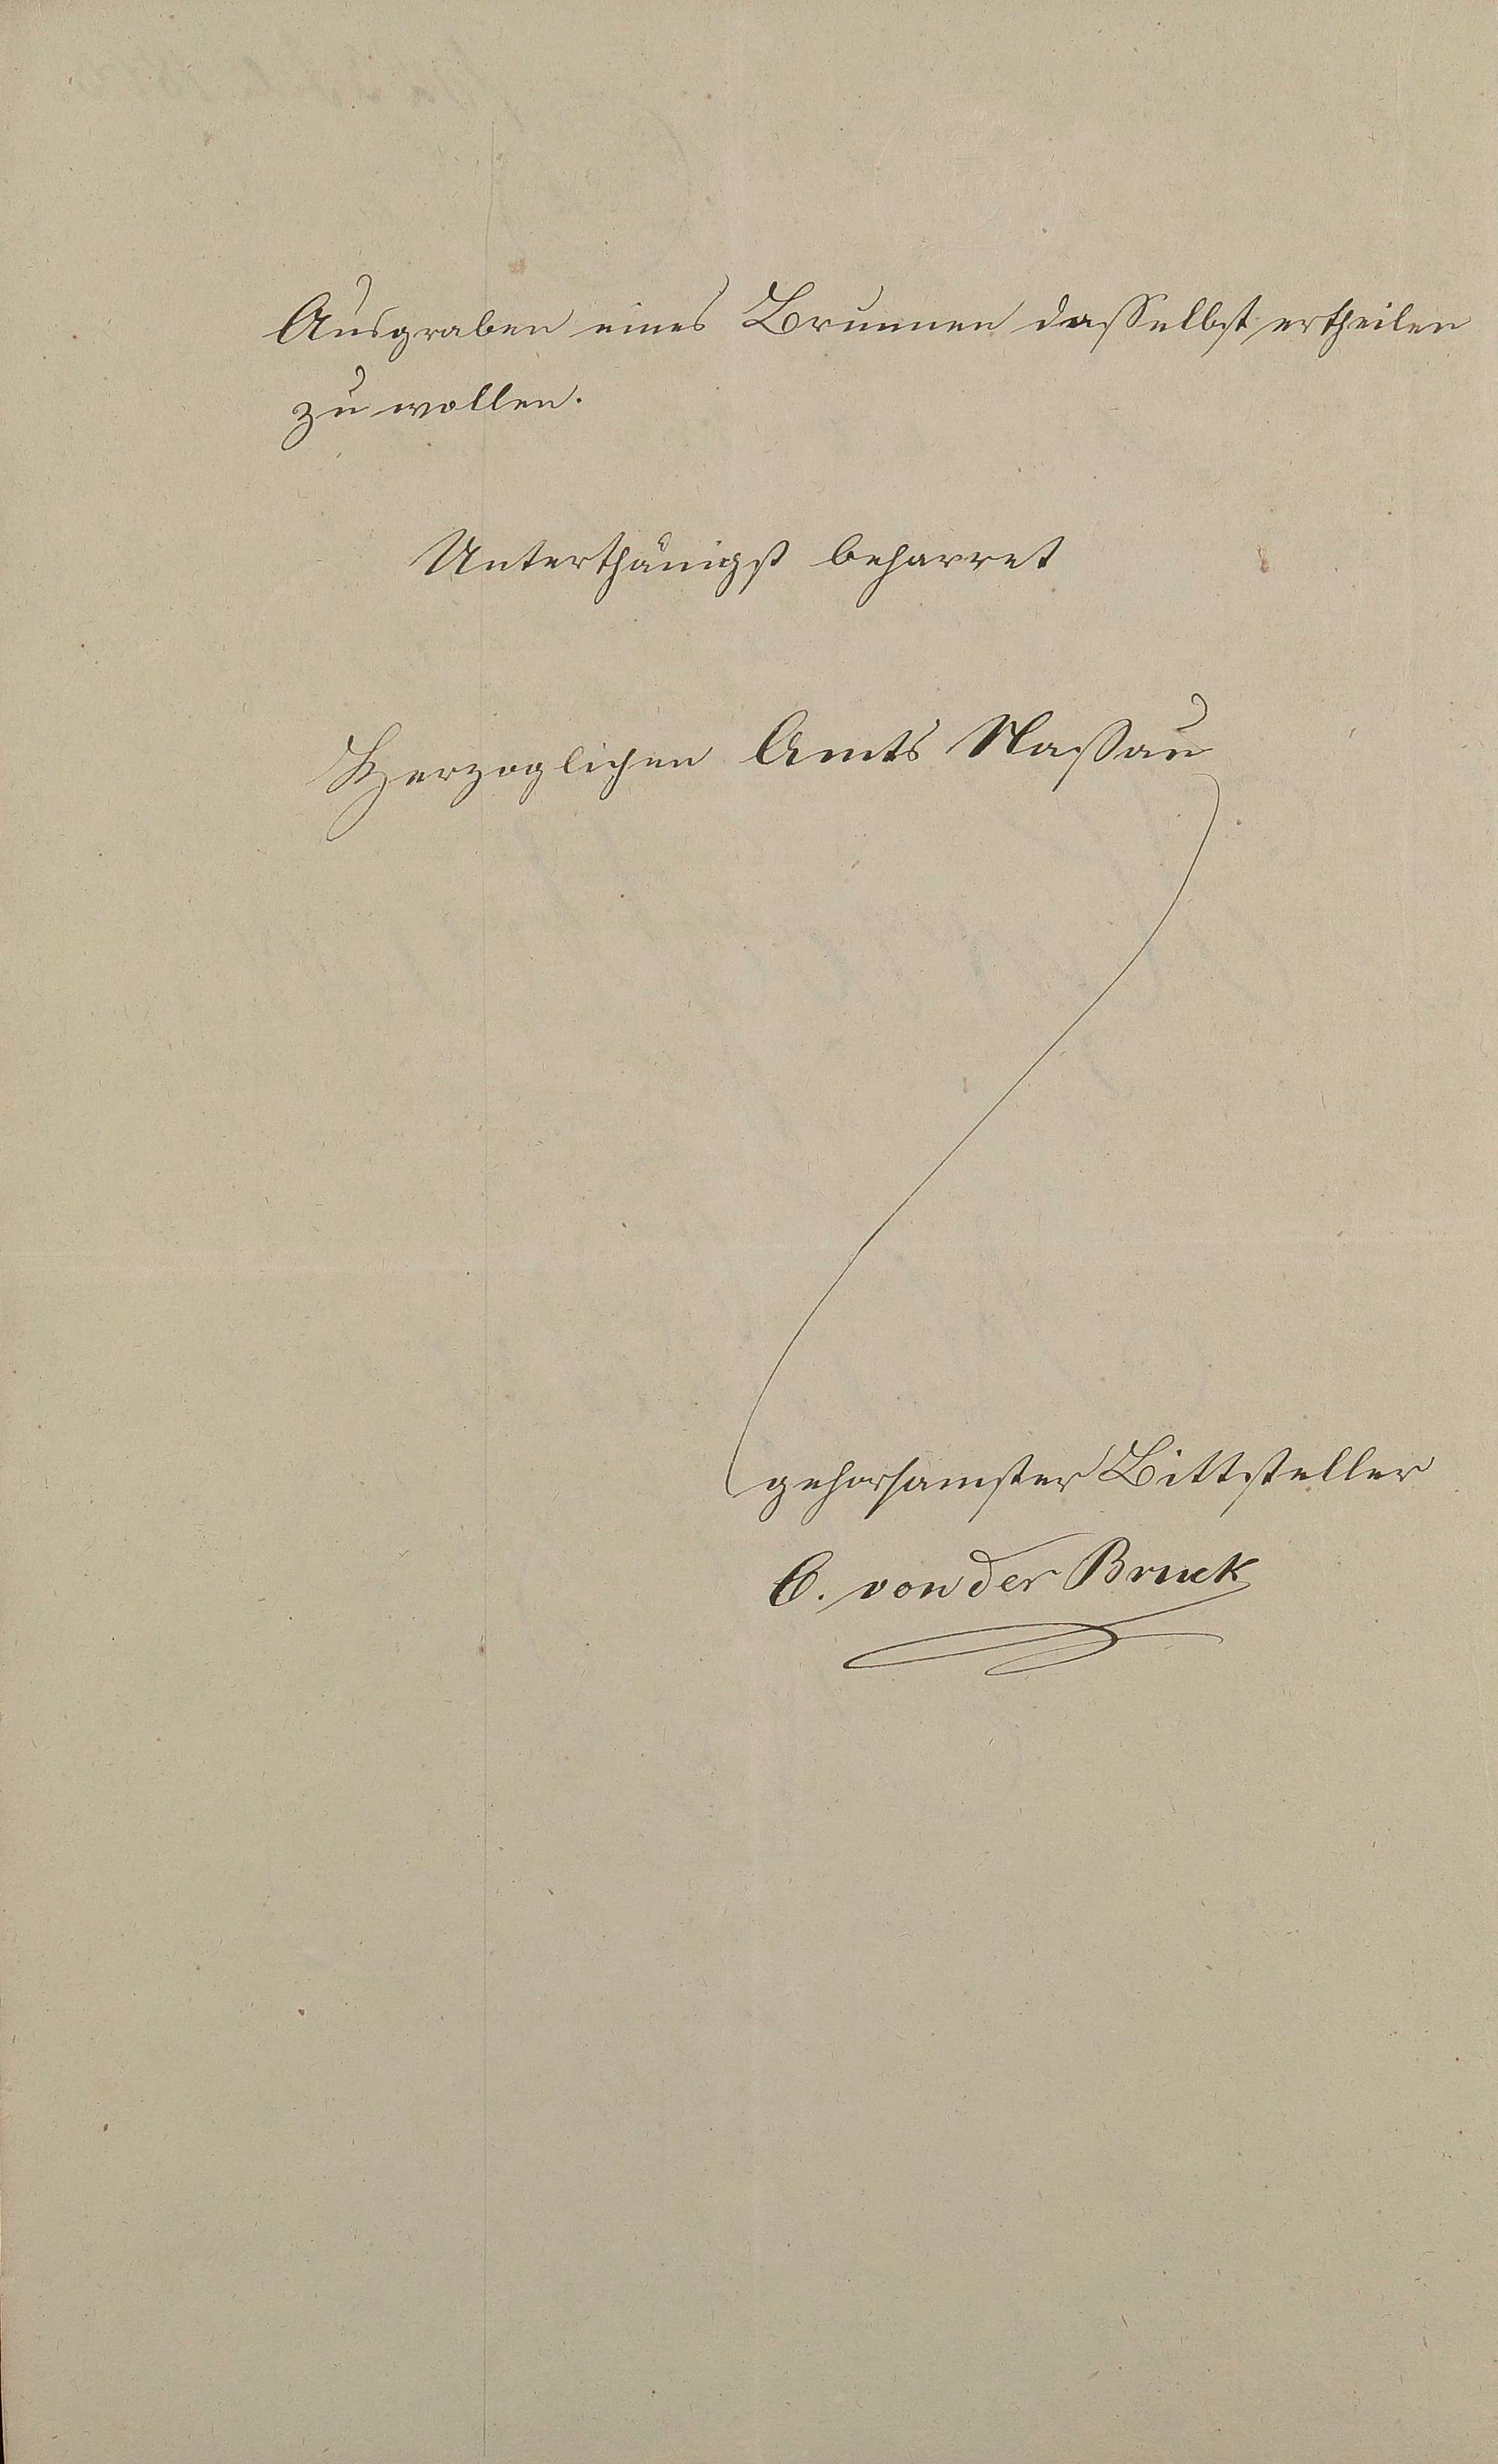 Ausgraben eines Brunnen dasselbst ertheilen
zu wollen.
Unterthänigst beharret
Herzoglichen Amts Nassau
gehorsamster Bittsteller
C. von der Bruck